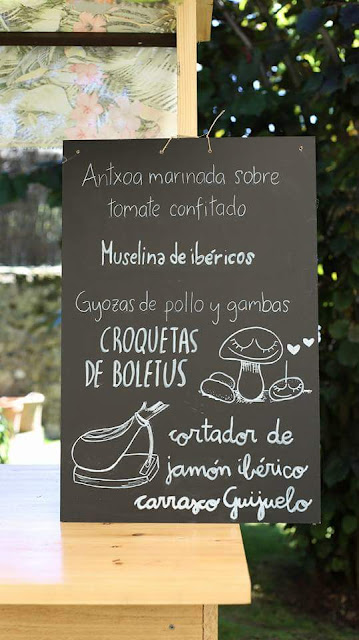 Antxoa marinada sobre
tomate confitado
Muselina de ibéricos
Gyozas de pollo y gambas
CROQUETAS
DE BOLETUS
cortador de
jamón ibérico
carrasco Guijuelo